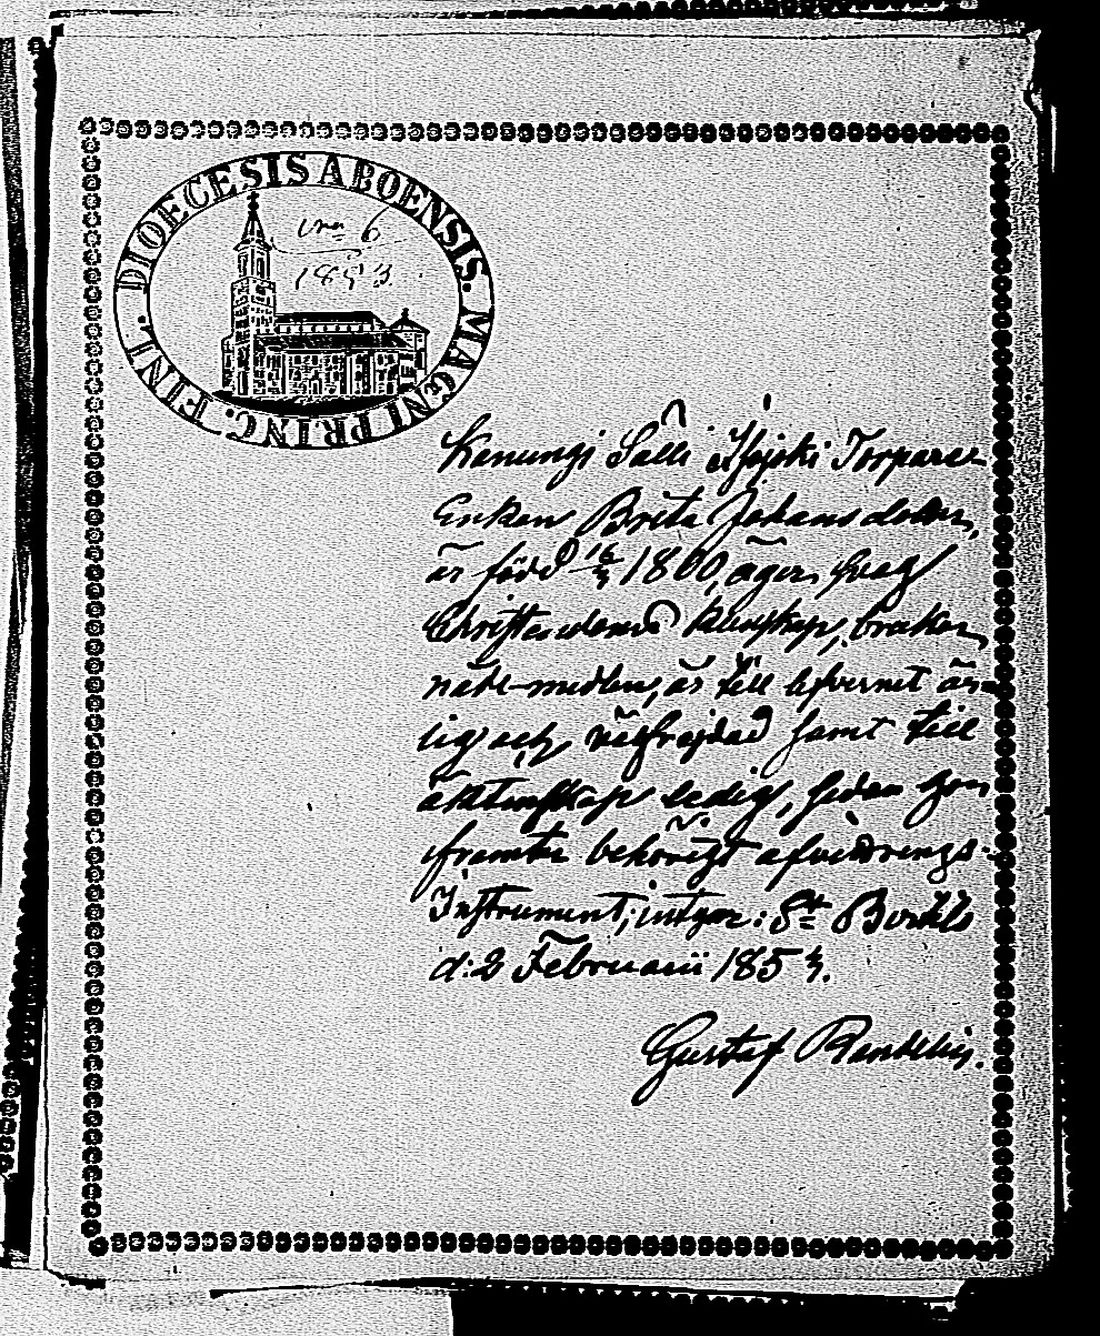 DIOECESIS ABOENSIS. MAGNI PRINC. FINL.
N:o 6
1853.
Torpare
Enkan Brita Johansdotter,
är född 16/3 1800, äger svag
Christendoms kunskap, brukar
nådemedlen, är till lefvernet är-
lig och välfrejdad samt till
äktenskap ledig, sedan hon
framte behörigt afvittrings-
Instrument, intygar: St Bertils
d: 2 Februarii 1853.
Gustaf Randelin.